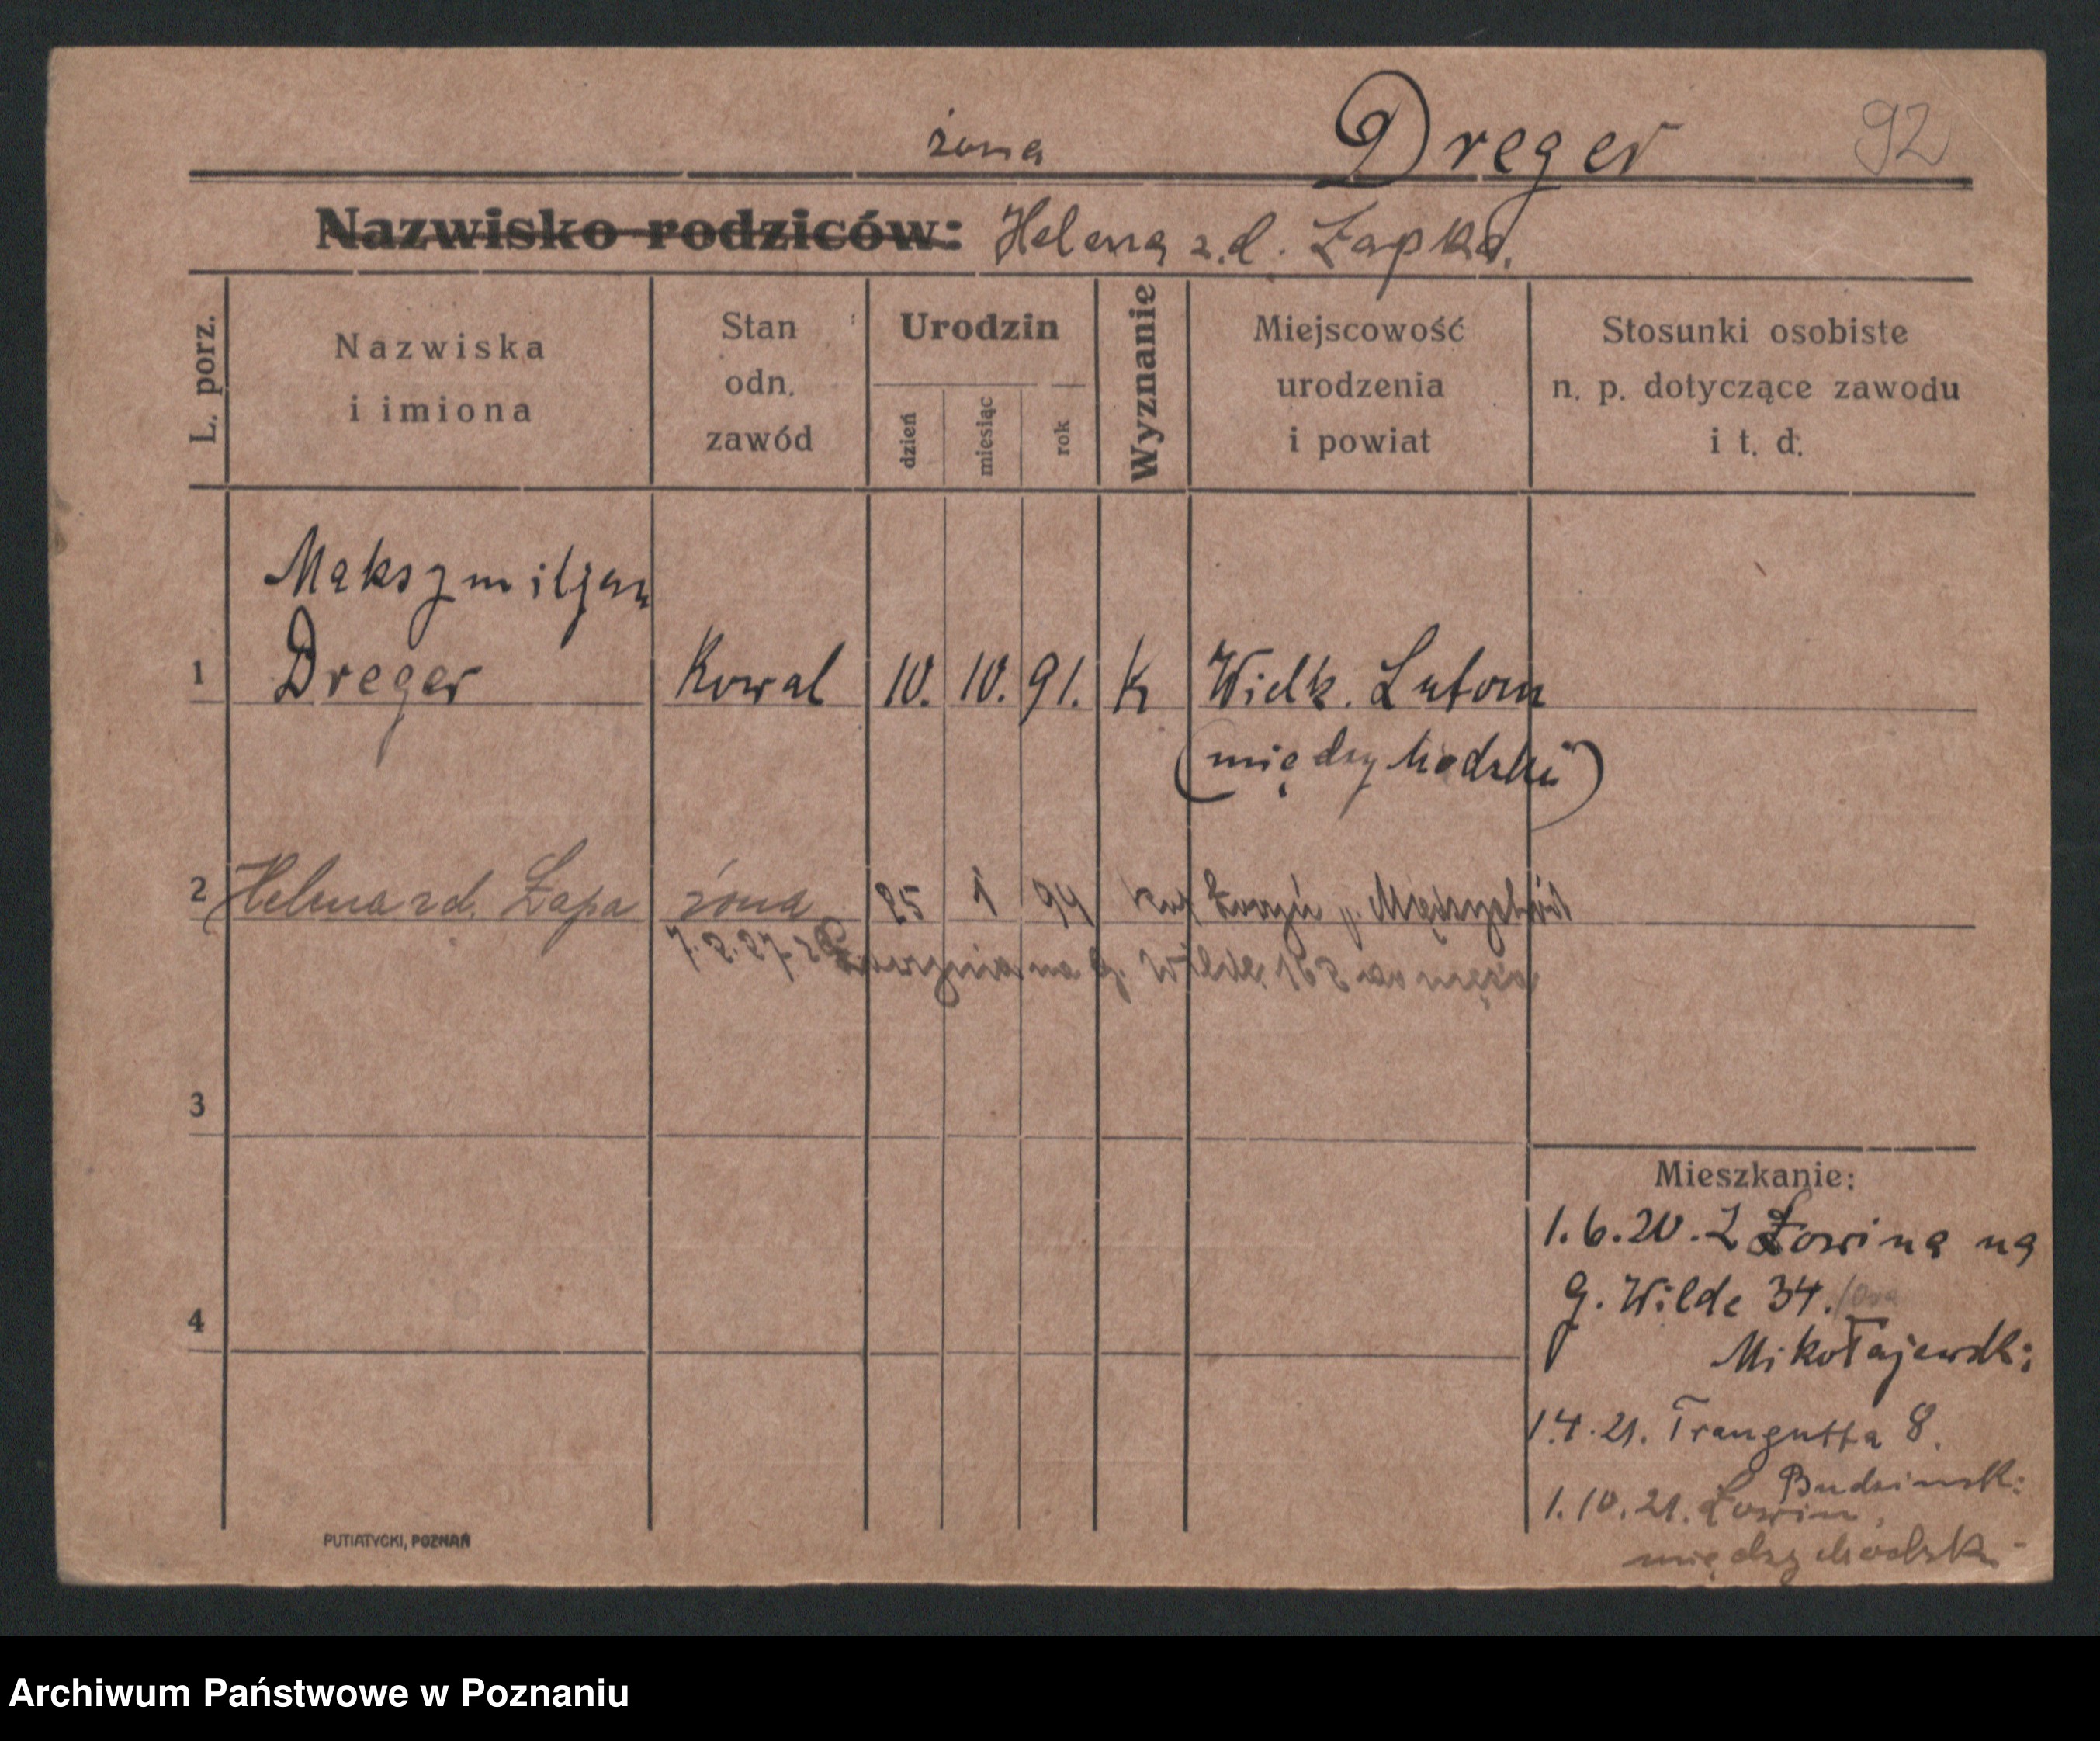 żona Dreger 92
Nazwisko rodziców: Helena z.d. Łapka.
L. porz.
Nazwiska
i imiona
Stan
odn.
zawód
Urodzin
dzień
miesiąc
rok
Wyznanie
Miejscowość
urodzenia
i powiat
Stosunki osobiste
n. p. dotyczące zawodu
i t. d.
Maksymiljan
1 Dreger Kowal 10. 10. 91. K Wielk. Lutom
(międzychodzki)
2 Helena zd. Łapa żona 25 1 94 kat p. Międzychód
7.2.27 na G. Wilde 163 do męża
3
4
Mieszkanie:
1.6.20. Z Łowina na
G. Wilde 34.
Mikołajewski
1.4.21. Traugutta 8.
Budzinski
1.10.21. Łowin,
międzychodzki
PUTIATYCKI, POZNAŃ
Archiwum Państwowe w Poznaniu